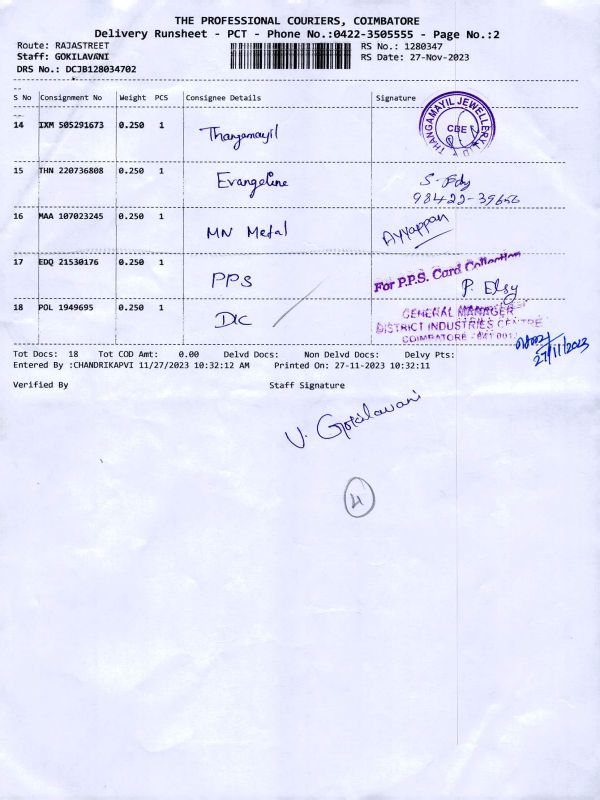 THE PROFESSIONAL COURIERS, COIMBATORE
Delivery Runsheet - PCT - Phone No.:0422-3505555 - Page No.:2
Route: RAJASTREET RS No.: 1280347
Staff: GOKILAVANI RS Date: 27-Nov-2023
DRS No.: DCJB128034702
S No Consignment No Weight PCS Consignee Details Signature
14 IXM 505291673 0.250 1 Thangamayil THANGAMAYIL JEWELLERY CBE
15 THN 220736808 0.250 1 Evangeline
98422-39656
16 MAA 107023245 0.250 1 MN Metal Ayyappan
17 EDQ 21530176 0.250 1 PPS For P.P.S. Card Collection
P. Elsy
18 POL 1949695 0.250 1 DIC GENERAL MANAGER
DISTRICT INDUSTRIES CENTRE
COIMBATORE - 641 001
27/11/2023
Tot Docs: 18 Tot COD Amt: 0.00 Delvd Docs: Non Delvd Docs: Delvy Pts:
Entered By :CHANDRIKAPVI 11/27/2023 10:32:12 AM Printed On: 27-11-2023 10:32:11
Verified By Staff Signature
V. Gokilavani
4